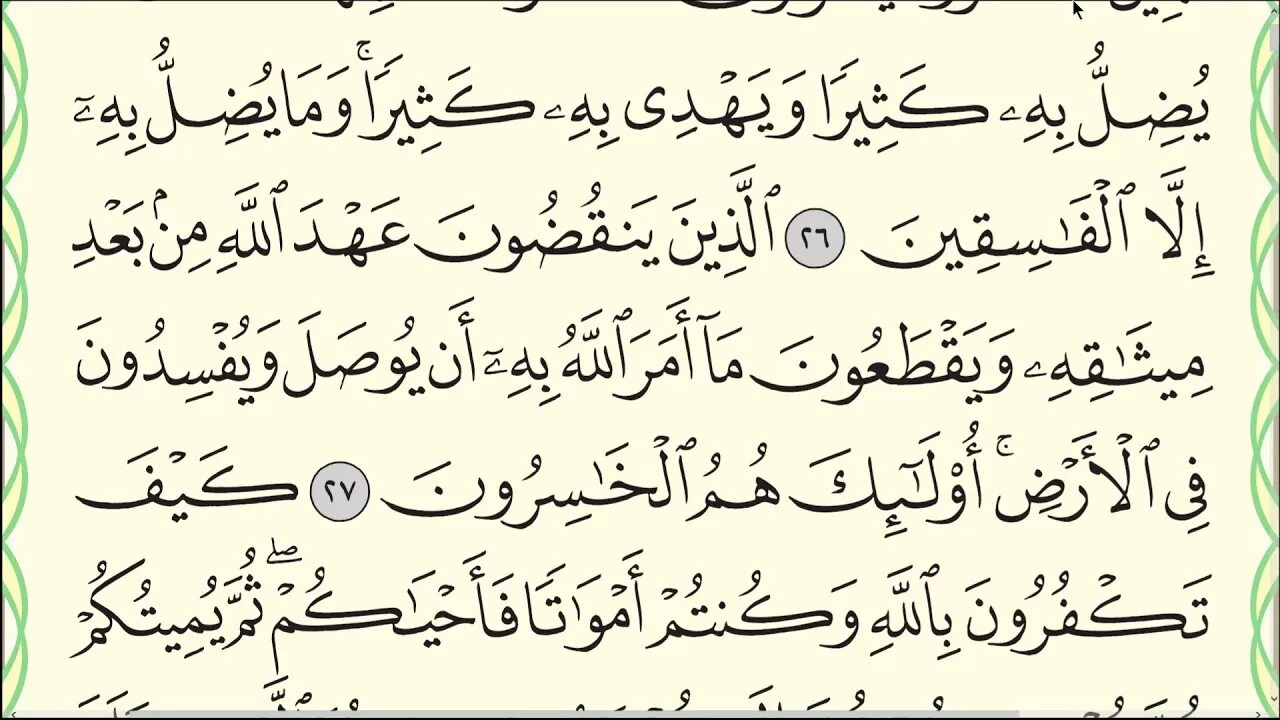 يُضِلُّ بِهِۦ كَثِيرًا وَيَهْدِى بِهِۦ كَثِيرًا ۚ وَمَا يُضِلُّ بِهِۦٓ
إِلَّا ٱلْفَـٰسِقِينَ ٢٦ ٱلَّذِينَ يَنقُضُونَ عَهْدَ ٱللَّهِ مِنۢ بَعْدِ
مِيثَـٰقِهِۦ وَيَقْطَعُونَ مَآ أَمَرَ ٱللَّهُ بِهِۦٓ أَن يُوصَلَ وَيُفْسِدُونَ
فِى ٱلْأَرْضِ ۚ أُو۟لَـٰٓئِكَ هُمُ ٱلْخَـٰسِرُونَ ٢٧ كَيْفَ
تَكْفُرُونَ بِٱللَّهِ وَكُنتُمْ أَمْوَٰتًا فَأَحْيَـٰكُمْ ۖ ثُمَّ يُمِيتُكُمْ